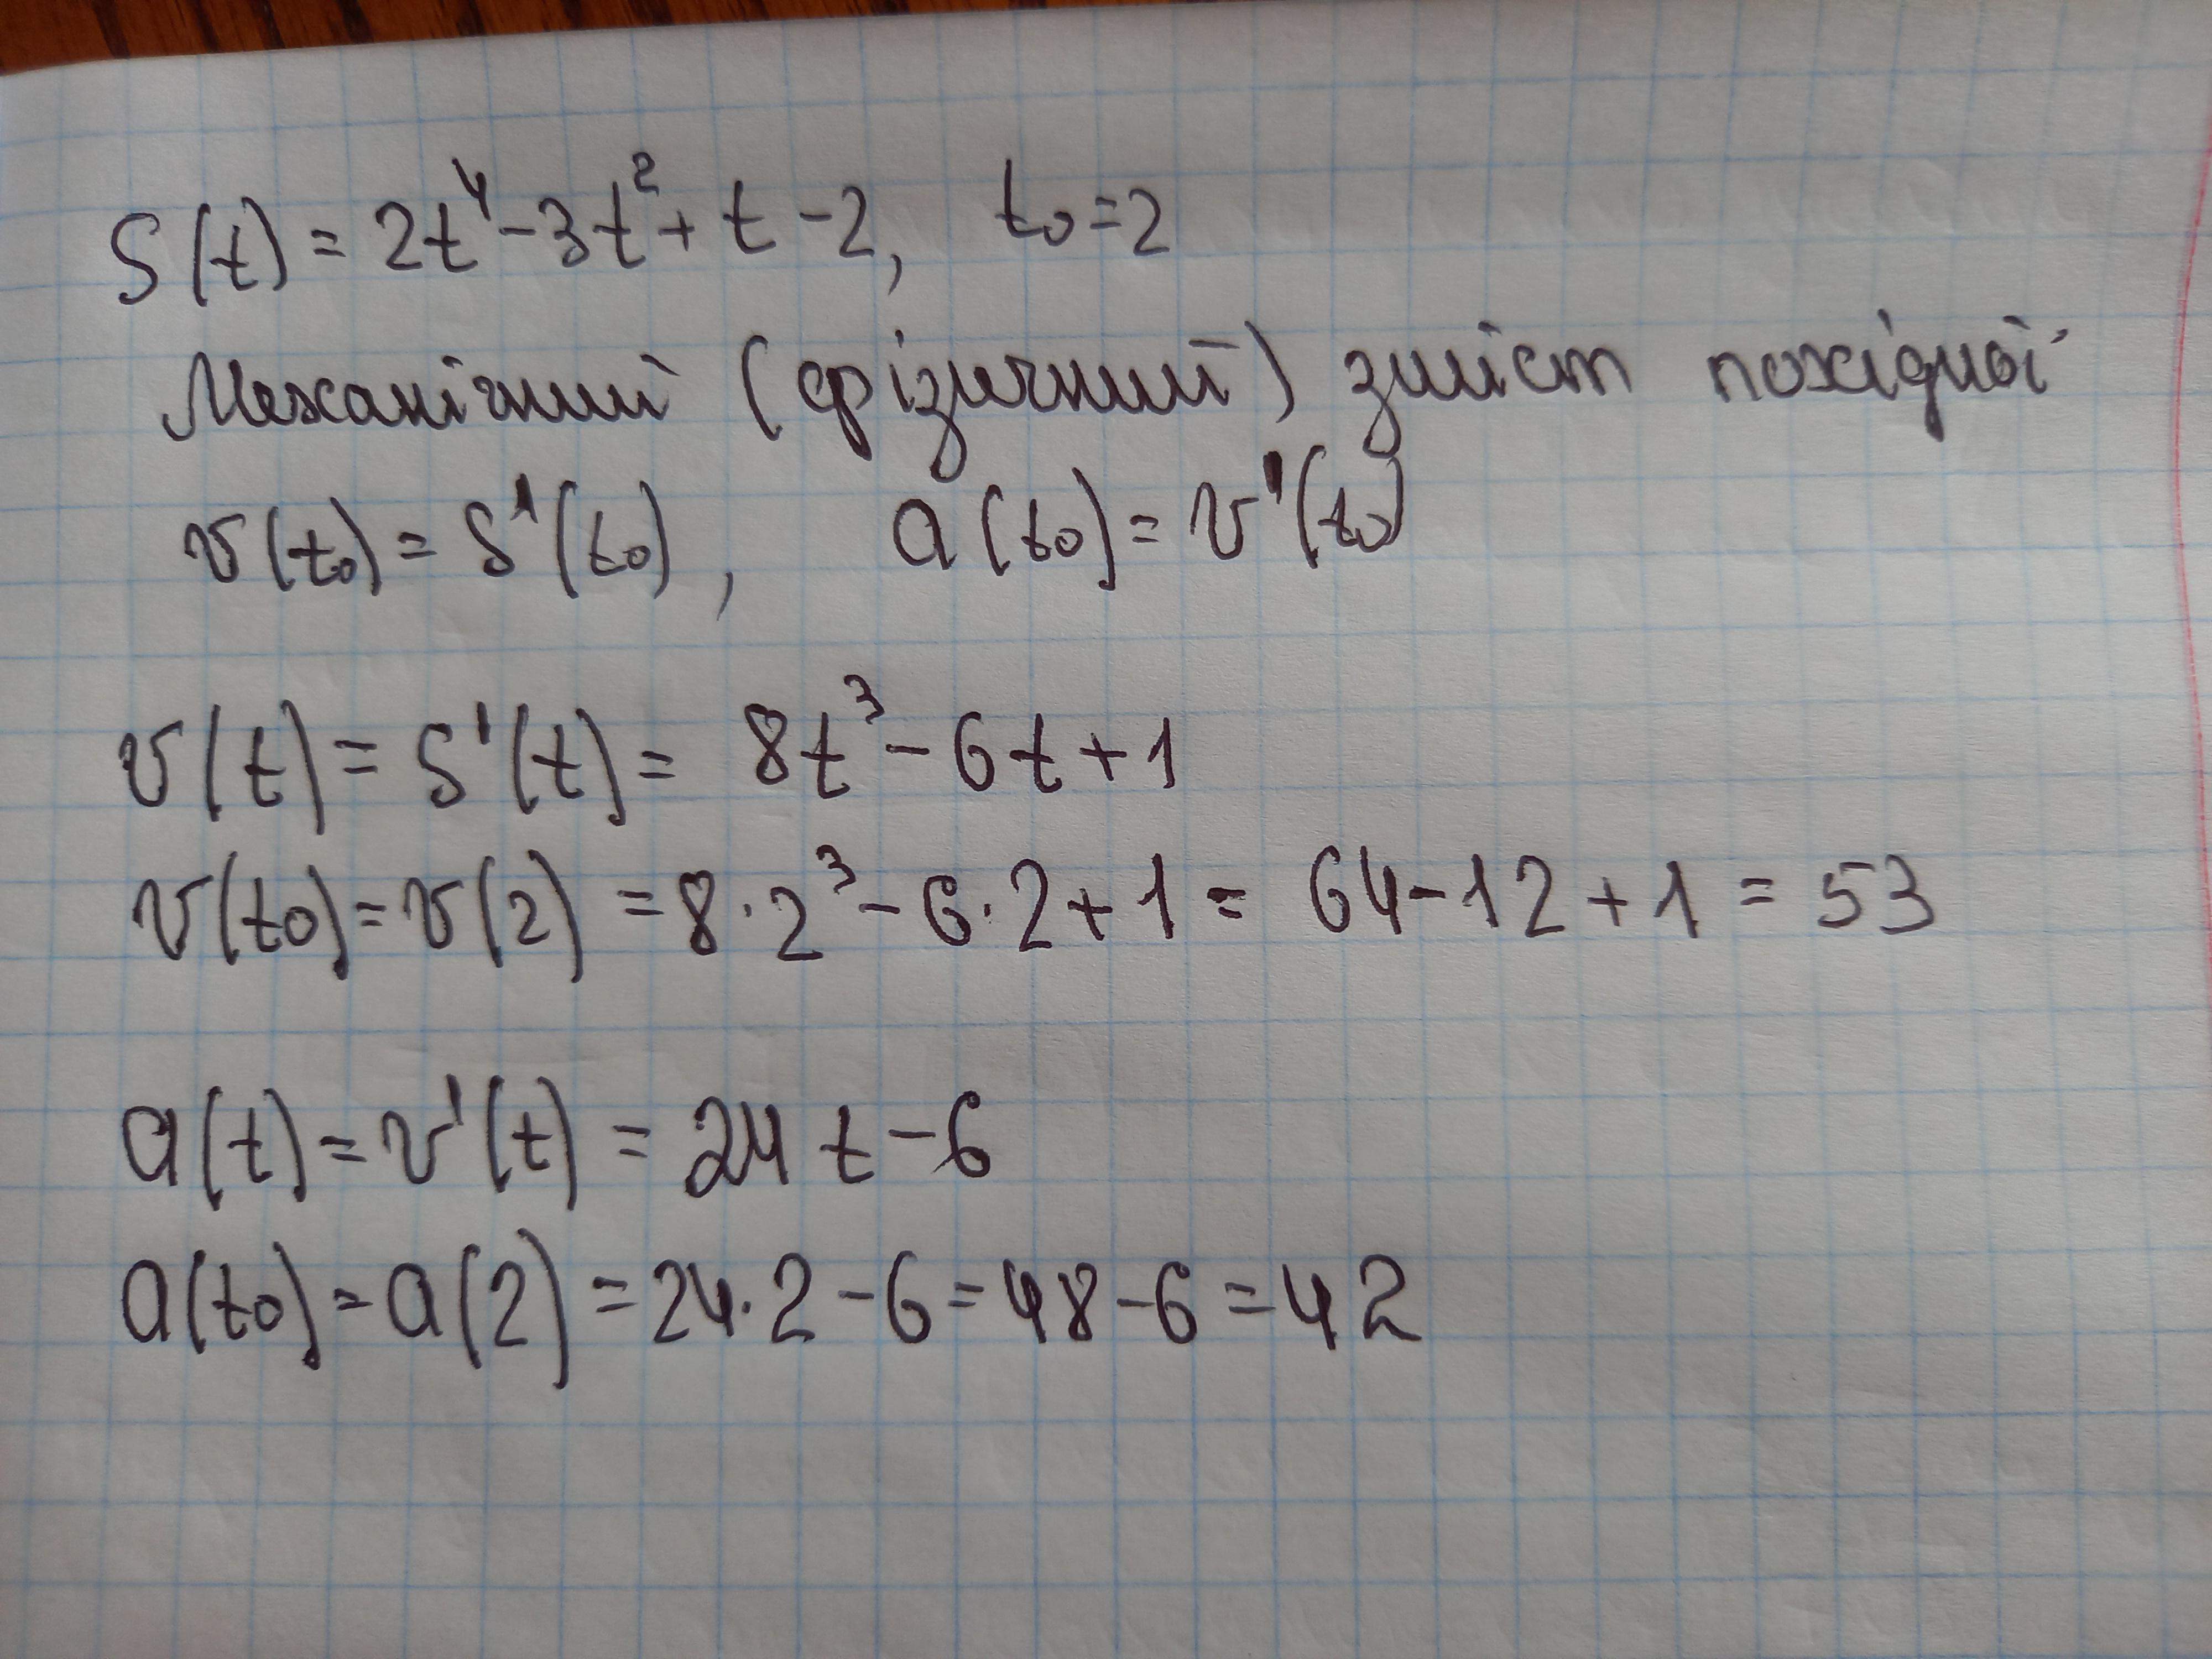 S(t) = 2t⁴ - 3t² + t - 2, t₀ = 2
Механічний (фізичний) зміст похідної
v(t₀) = S'(t₀), a(t₀) = v'(t₀)
v(t) = S'(t) = 8t³ - 6t + 1
v(t₀) = v(2) = 8·2³ - 6·2 + 1 = 64 - 12 + 1 = 53
a(t) = v'(t) = 24t - 6
a(t₀) = a(2) = 24·2 - 6 = 48 - 6 = 42